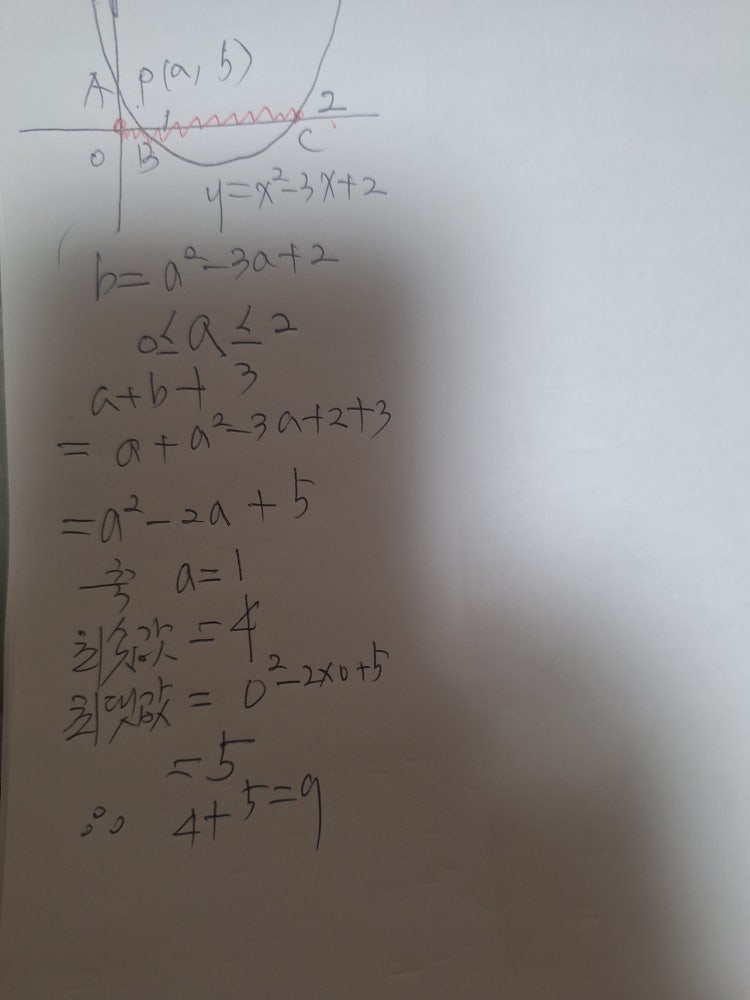 A P(a, b)
1 2
O B C
y=x²-3x+2
b=a²-3a+2
0≤a≤2
a+b+3
=a+a²-3a+2+3
=a²-2a+5
축 a=1
최솟값=4
최댓값=0²-2×0+5
=5
∴ 4+5=9